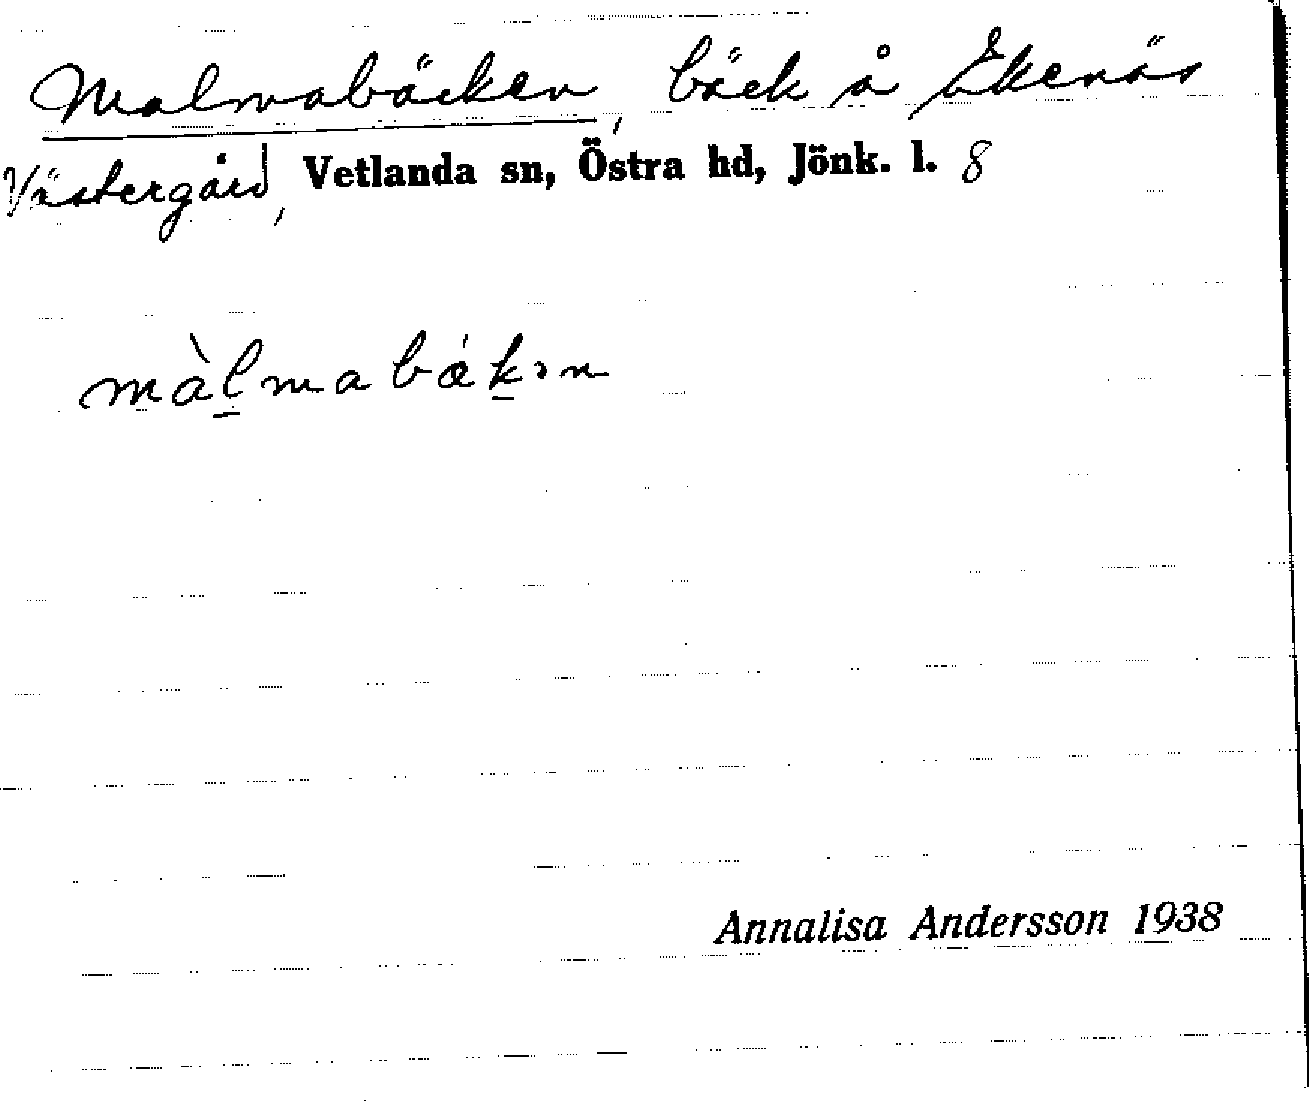 Malmabäcken, bäck å Ekenäs
Västergård, Vetlanda sn, Östra hd, Jönk. l. 8
màl̠mabǽk̠ən
Annalisa Andersson 1938